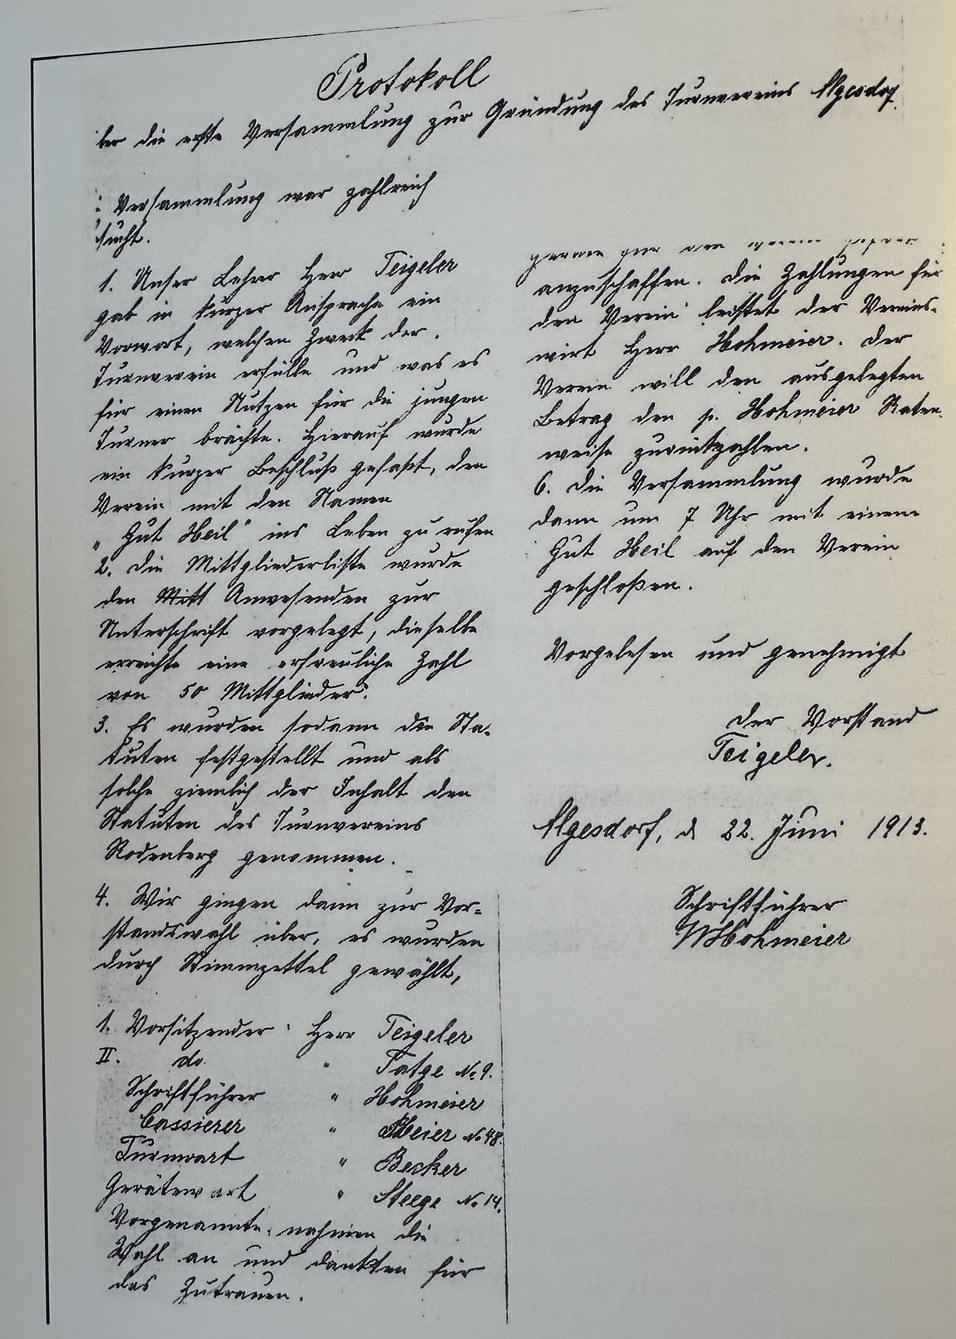 Protokoll
ber die erste Versammlung zur Gründung des Turnvereins Algesdorf.
Versammlung war zahlreich
sucht.
1. Unser Lehrer Herr Teigeler
gab in kurzer Ansprache ein
Vorwort, welchen Zweck der
Turnverein erfülle und was es
für einen Nutzen für die jungen
Turner brächte. Hierauf wurde
ein kurzer Beschluß gefaßt, den
Verein mit den Namen
„Gut Heil" ins Leben zu rufen
2. Die Mittgliederliste wurde
den Mitt Anwesenden zur
Unterschrift vorgelegt, dieselbe
erreichte eine erfreuliche Zahl
von 50 Mittglieder.
3. Es wurden sodann die Sta-
tuten festgestellt und als
solche ziemlich der Inhalt den
Statuten des Turnvereins
Rodenberg genommen.
4. Wir gingen dann zur Vor-
standswahl über, es wurden
durch Stimmzettel gewählt,
1. Vorsitzender Herr Teigeler
II. do. " Tatge No 9.
Schriftführer " Hohmeier
Cassierer " Meier No 48.
Turnwart " Becker
Gerätewart " Steege No 14.
Vorgenannte nahmen die
Wahl an und dankten für
das Zutrauen.
anzuschaffen. Die Zahlungen für
den Verein leistet der Vereins-
wirt Herr Hohmeier. Der
Verein will den ausgelegten
Betrag den p. Hohmeier Raten-
weise zurückzahlen.
6. Die Versammlung wurde
dann um 7 Uhr mit einem
Gut Heil auf den Verein
geschloßen.
Vorgelesen und genehmigt
Der Vorstand
Teigeler.
Algesdorf, d 22. Juni 1913.
Schriftführer
W Hohmeier